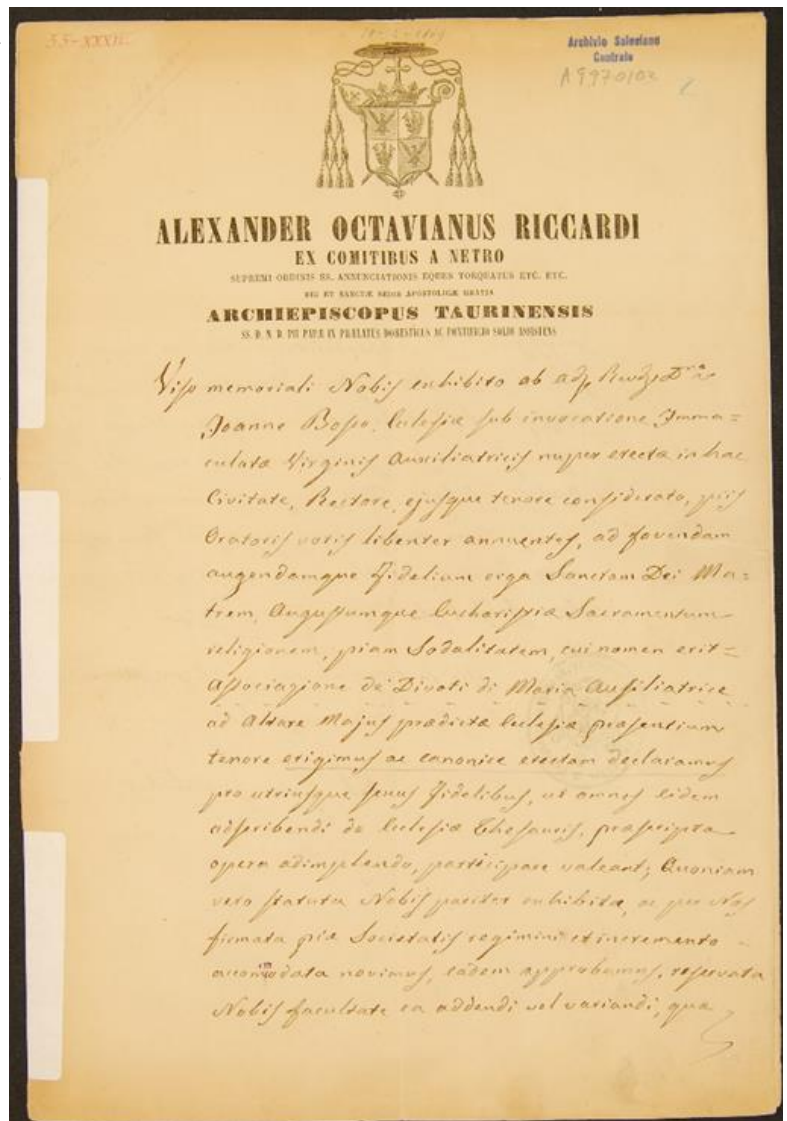 55-XXXII
Archivio Salesiano
Centrale
A9970102
ALEXANDER OCTAVIANUS RICCARDI
EX COMITIBUS A NETRO
SUPREMI ORDINIS SS. ANNUNCIATIONIS EQUES TORQUATUS ETC. ETC.
DEI ET SANCTÆ SEDIS APOSTOLICÆ GRATIA
ARCHIEPISCOPUS TAURINENSIS
SS. D. N. D. PII PAPÆ IX PRÆLATUS DOMESTICUS AC PONTIFICIO SOLIO ASSISTENS
Viso memoriali Nobis exhibito ab
Joanne Bosco, Ecclesiæ sub invocatione Imma=
culatæ Virginis Auxiliatricis nuper erectæ in hac
Civitate, Rectore, ejusque tenore considerato, piis
Oratoris votis libenter annuentes, ad fovendam
augendamque Fidelium erga Sanctam Dei Ma=
trem, Augustumque Eucharistiæ Sacramentum
religionem, piam Sodalitatem, cui nomen erit=
Associazione de' Divoti di Maria Ausiliatrice
ad Altare Majus prædictæ Ecclesiæ præsentium
tenore erigimus ac canonice erectam declaramus
pro utriusque sexus Fidelibus, ut omnes eidem
adscribendi de Ecclesiæ Thesauris, præscripta
opera adimplendo, participare valeant; Quoniam
vero statuta Nobis pariter exhibita, ac per Nos
firmata piæ Societatis regimini et incremento
accomodata novimus, eadem approbamus, reservata
Nobis facultate ea addendi vel variandi, quæ